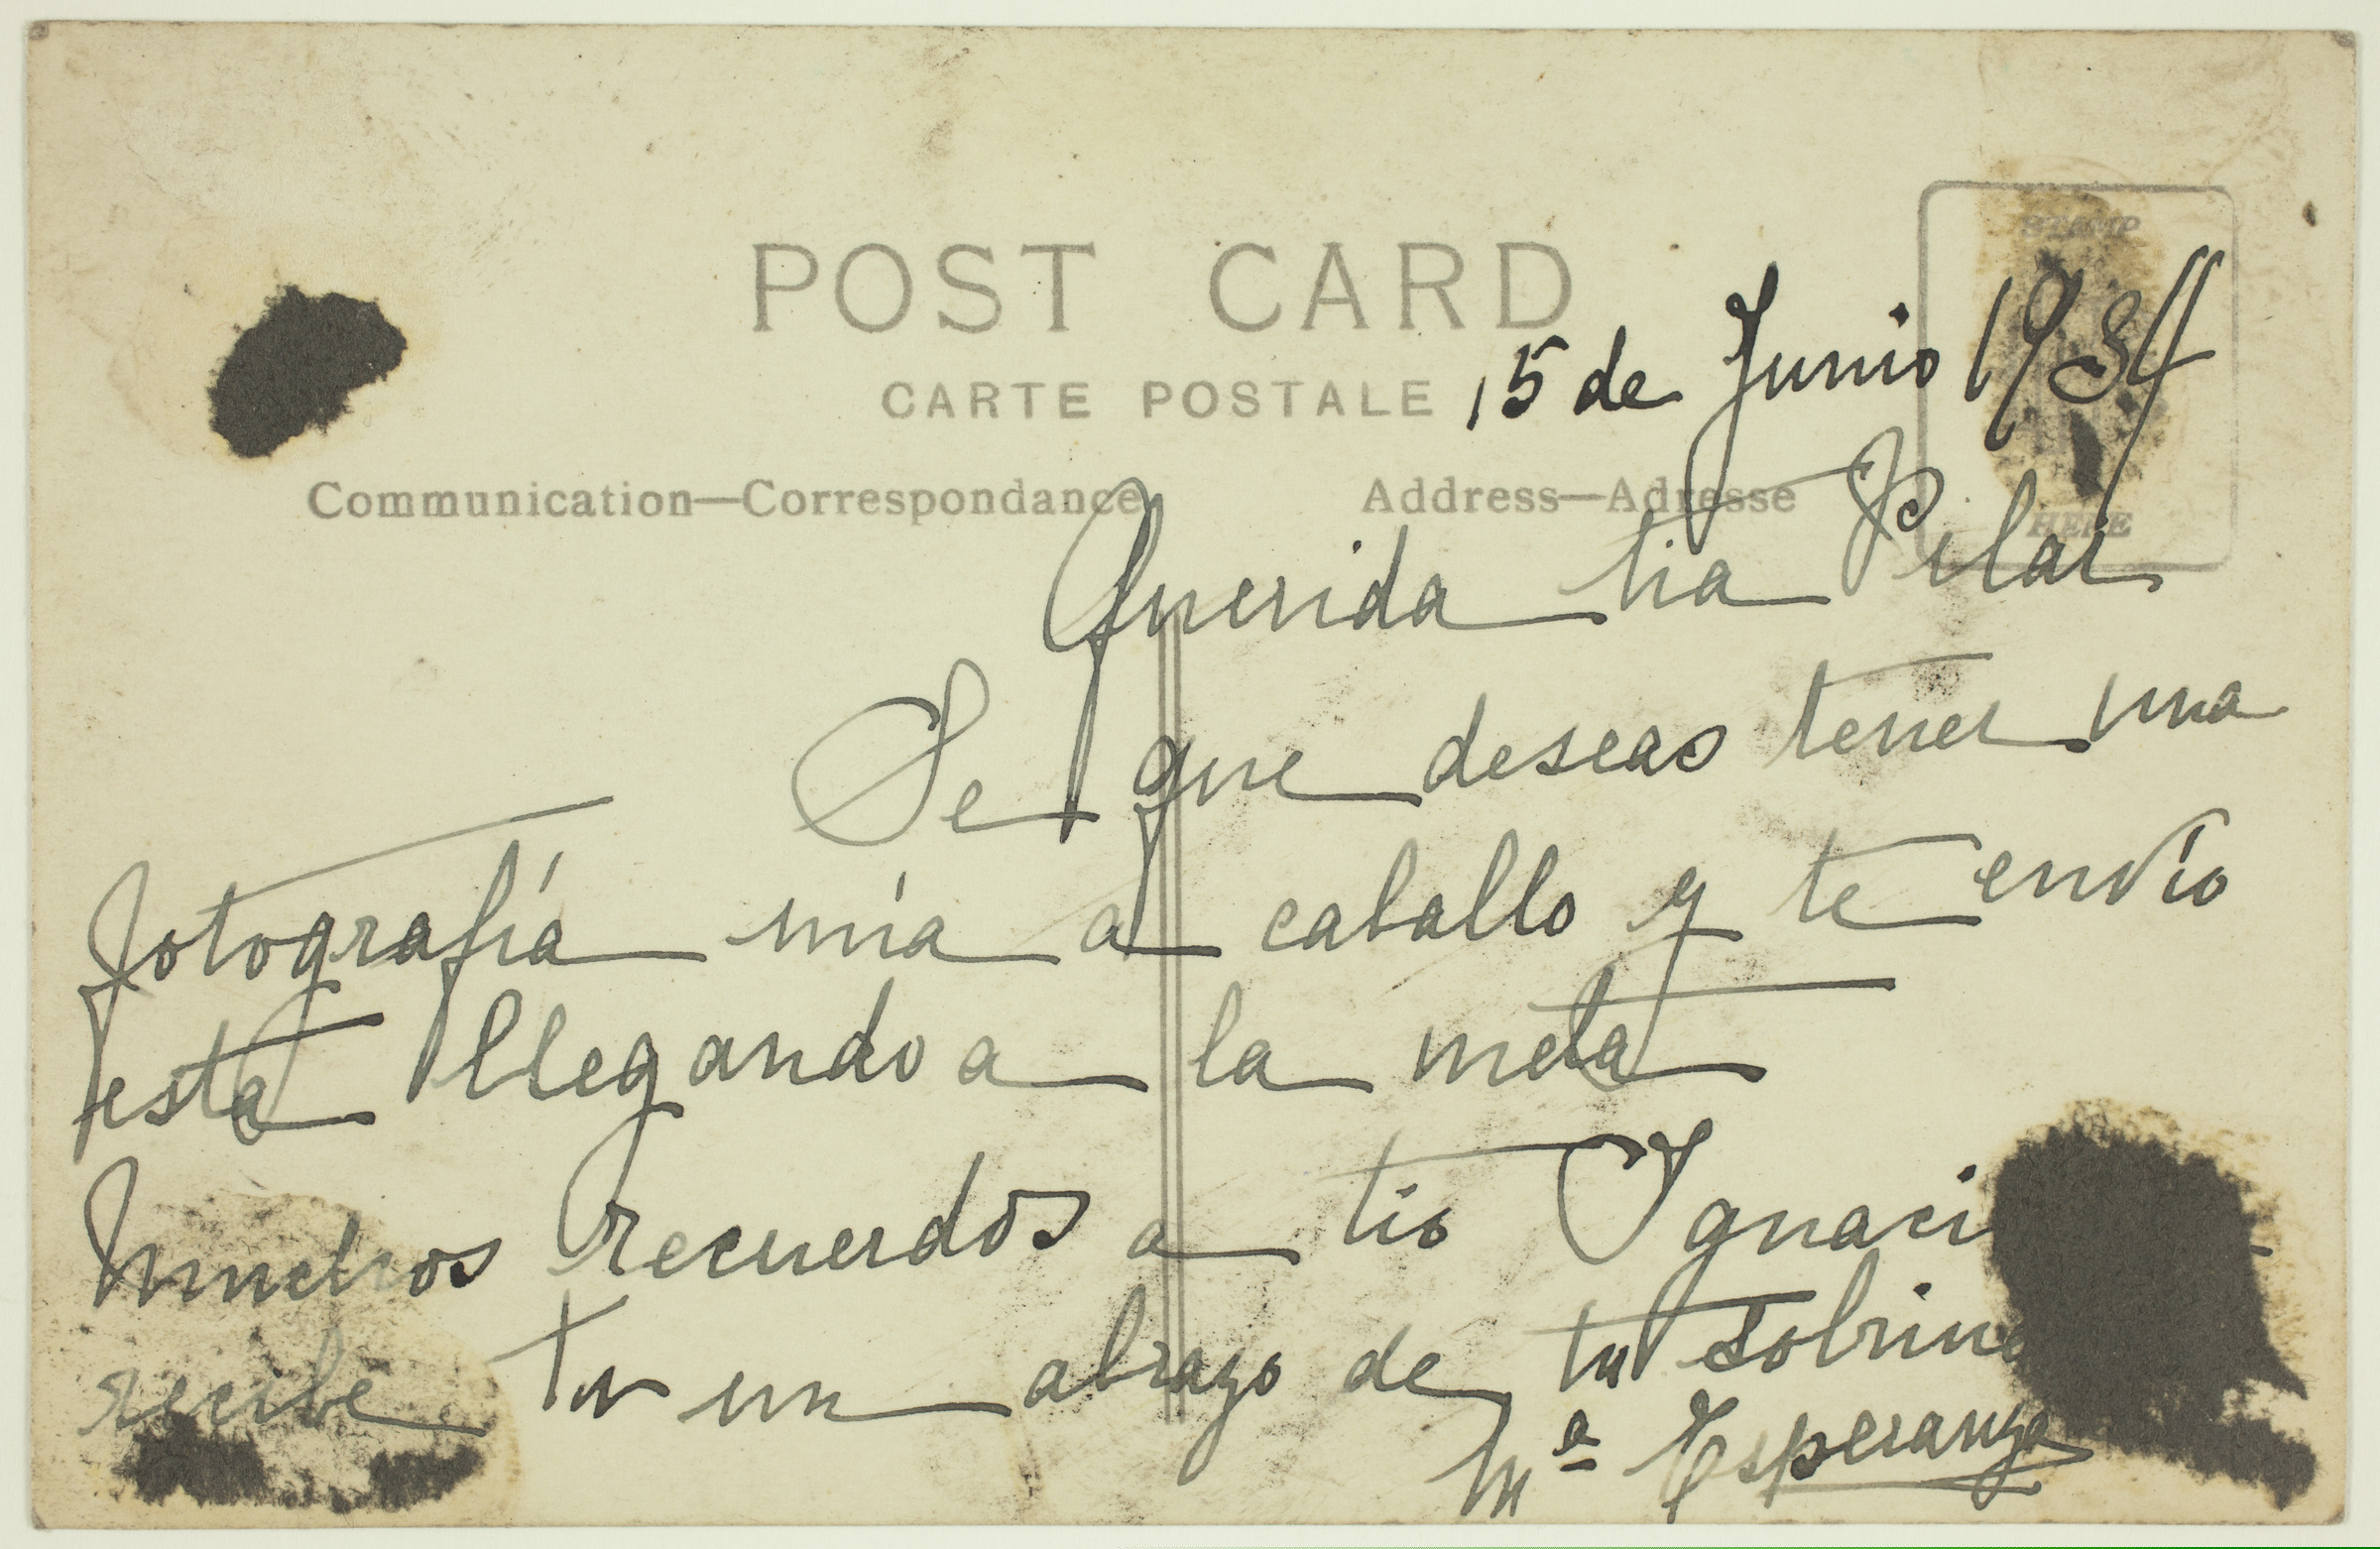 POST CARD
CARTE POSTALE
15 de Junio 1934
Communication—Correspondance
Address—Adresse
STAMP
HERE
Querida tia Pilar
Se que deseas tener una
fotografía mía a caballo y te envío
esta llegando a la meta
Muchos recuerdos a tio Ignaci
recibe tu un abrazo de tu sobrina
Mª Esperanza